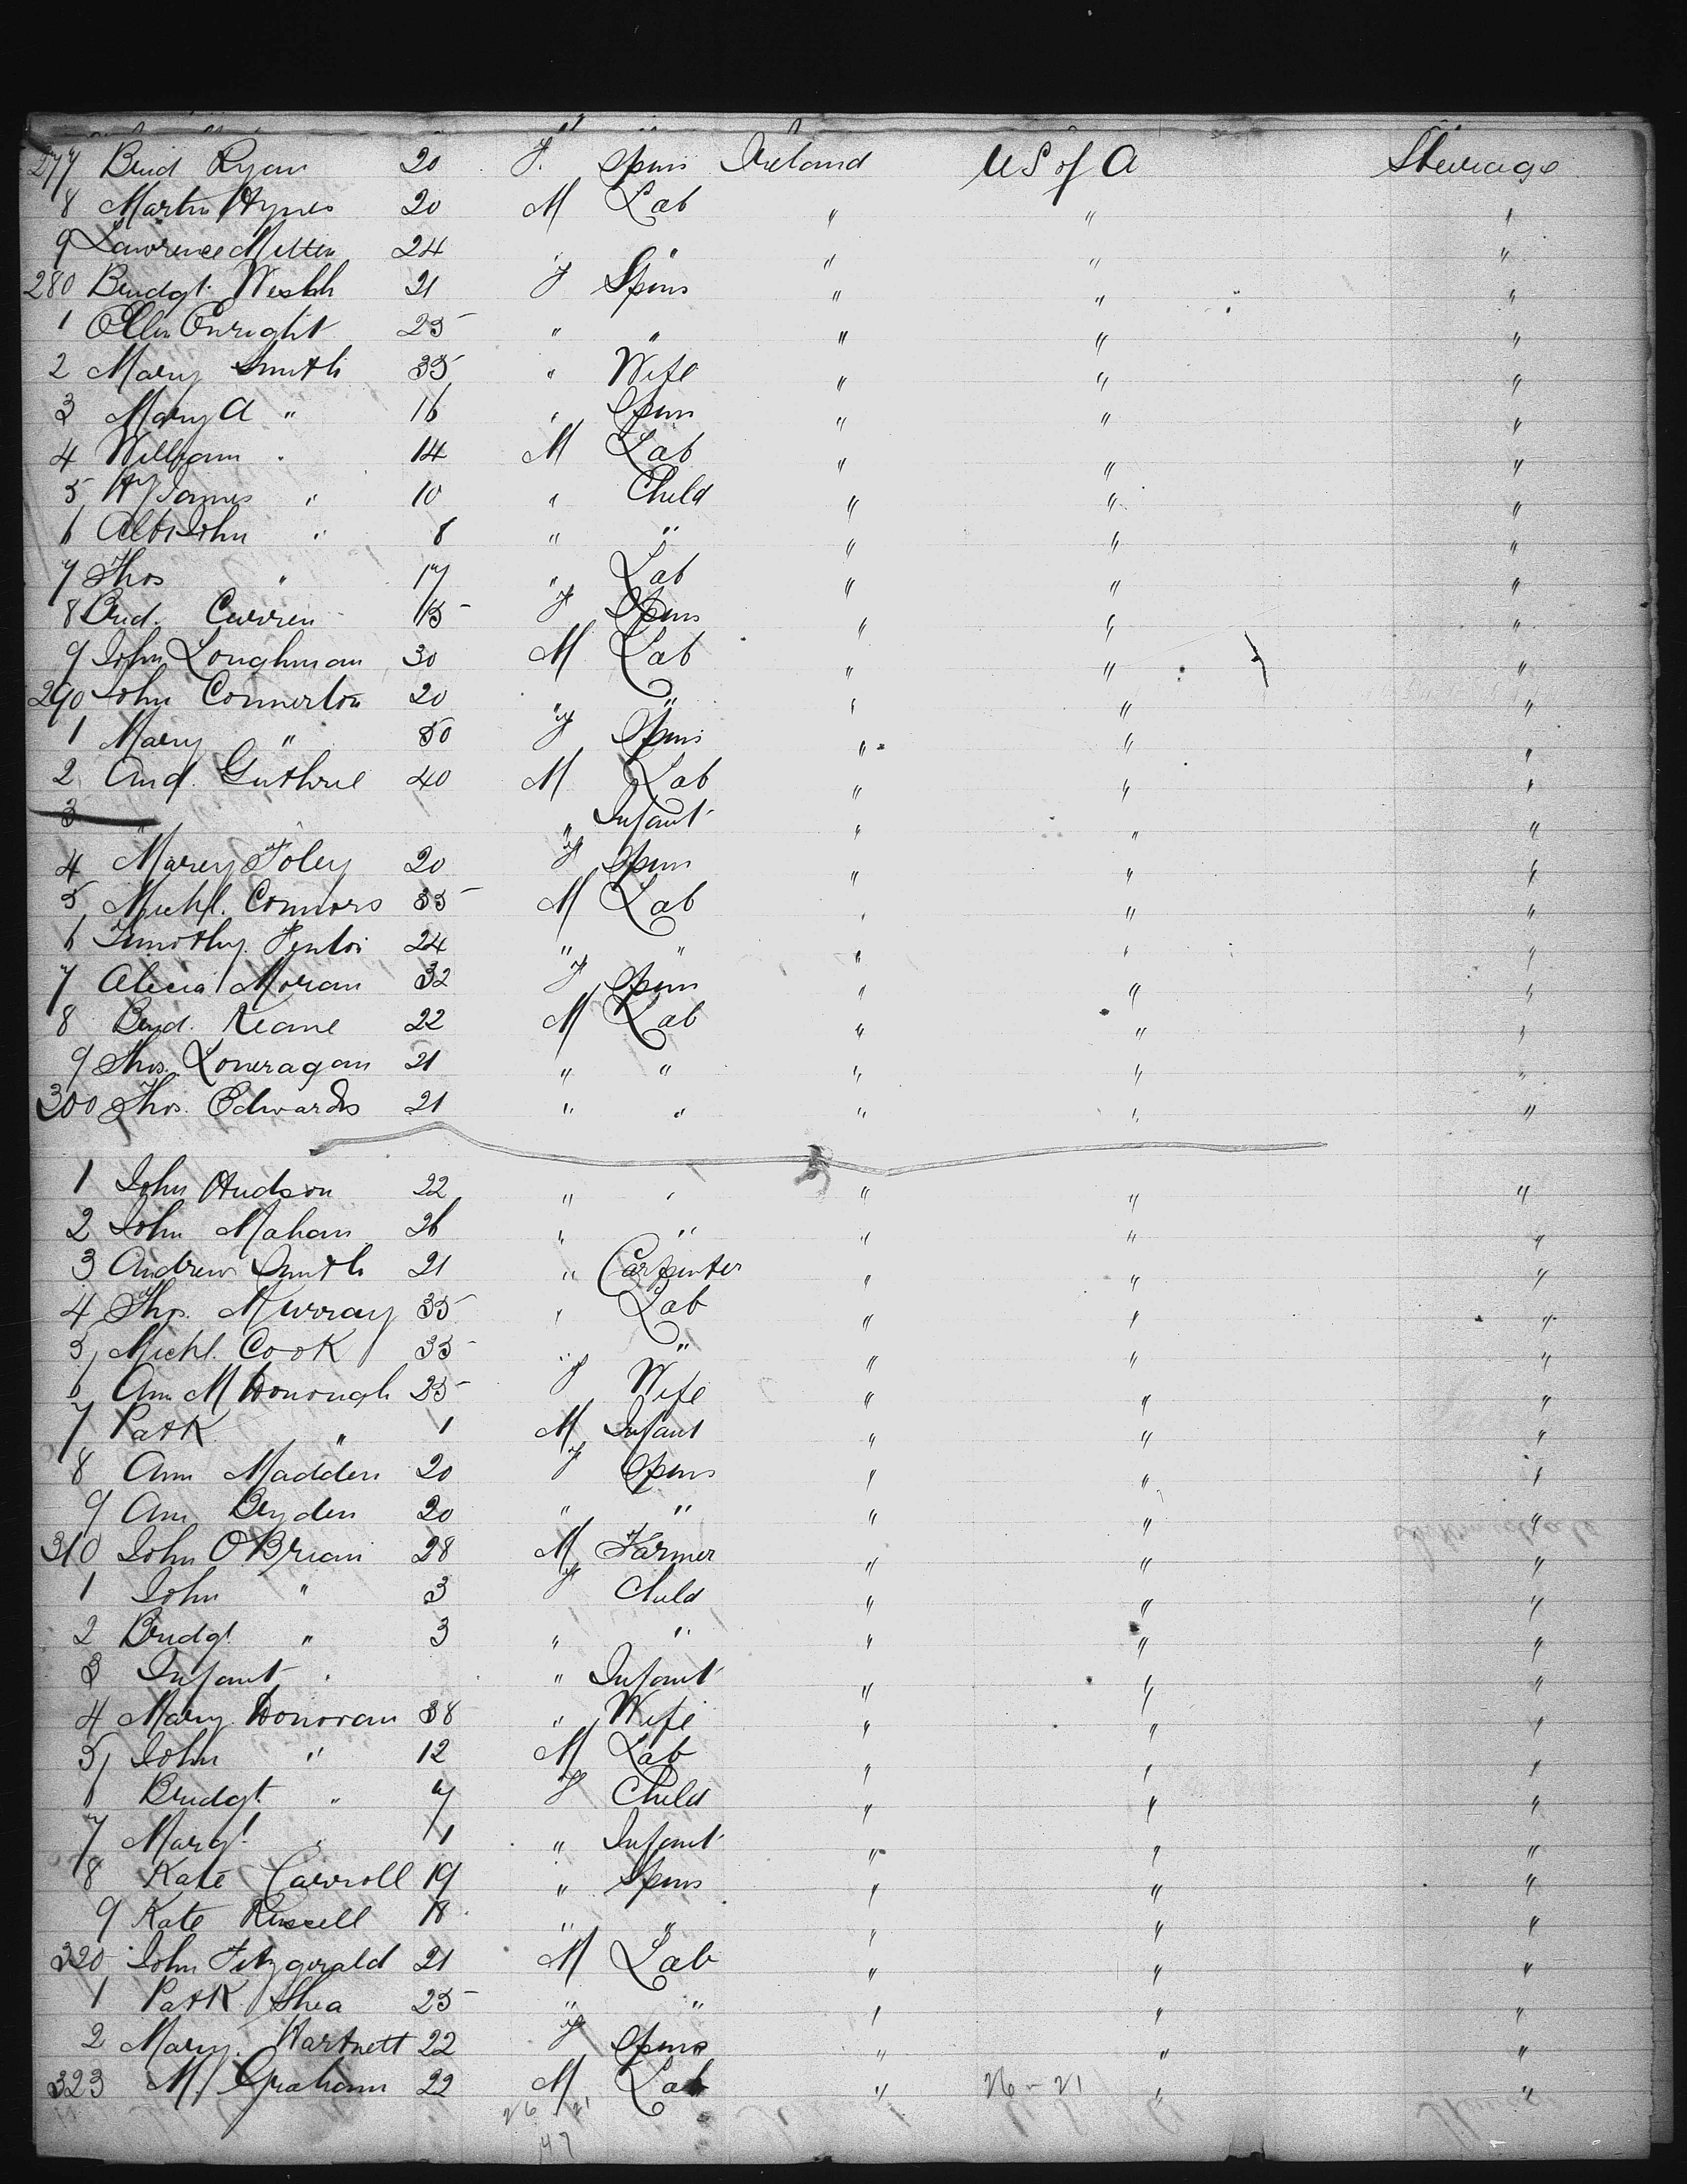 277 Brid Ryan 20 F. Spins Ireland US of A Steerage
8 Martin Hynes 20 M Lab " " "
9 Lawrence Mitten 24 " " " " "
280 Bridgt. Welsh 21 F Spins " " "
1 Ellen Enright 25 " " " " "
2 Mary Smith 35 " Wife " " "
3 Mary A " 16 " Spins " " "
4 William " 14 M Lab " " "
5 Hy James " 10 " Child " " "
6 Albt John " 8 " " " " "
7 Thos " 17 " Lab " " "
8 Brid. Curren 15 F Spins " " "
9 John Loughman 30 M Lab " " "
290 John Connerton 20 " " " " "
1 Mary " 50 F Spins " " "
2 And. Guthrie 40 M Lab " " "
3 " Infant " " "
4 Marey Foley 20 F Spins " " "
5 Michl. Connors 35 M Lab " " "
6 Timothy Fenton 24 " " " " "
7 Alecia Moran 32 F Spins " " "
8 Keane 22 M Lab " " "
9 Thos. Loneragan 21 " " " " "
300 Thos. Edwards 21 " " " " "
1 John Hudson 22 " " " " "
2 John Mahon 26 " " " " "
3 Andrew Smith 21 " Carpenter " " "
4 Thos. Murray 35 " Lab " " "
5 Michl. Cook 35 " " " " "
6 Ann McDonough 25 F Wife " " "
7 Patk " 1 M Infant " " "
8 Ann Madden 20 F Spins " " "
9 Ann Bryden 20 " " " " "
310 John O'Brian 28 M Farmer " " "
1 John " 3 F Child " " "
2 Bridgt " 3 " " " " "
3 Infant " " Infant " " "
4 Mary Donovan 38 " Wife " " "
5 John " 12 M Lab " " "
6 Bridgt. " 7 F Child " " "
7 Margt. " 1 " Infant " " "
8 Kate Carroll 19 " Spins " " "
9 Kate Russell 18 " " " " "
320 John Fitzgerald 21 M Lab " " "
1 Patk Shea 25 " " " " "
2 Mary Hartnett 22 F Spins " " "
323 M. Graham 22 M Lab " 26-21 " "
26 21
47